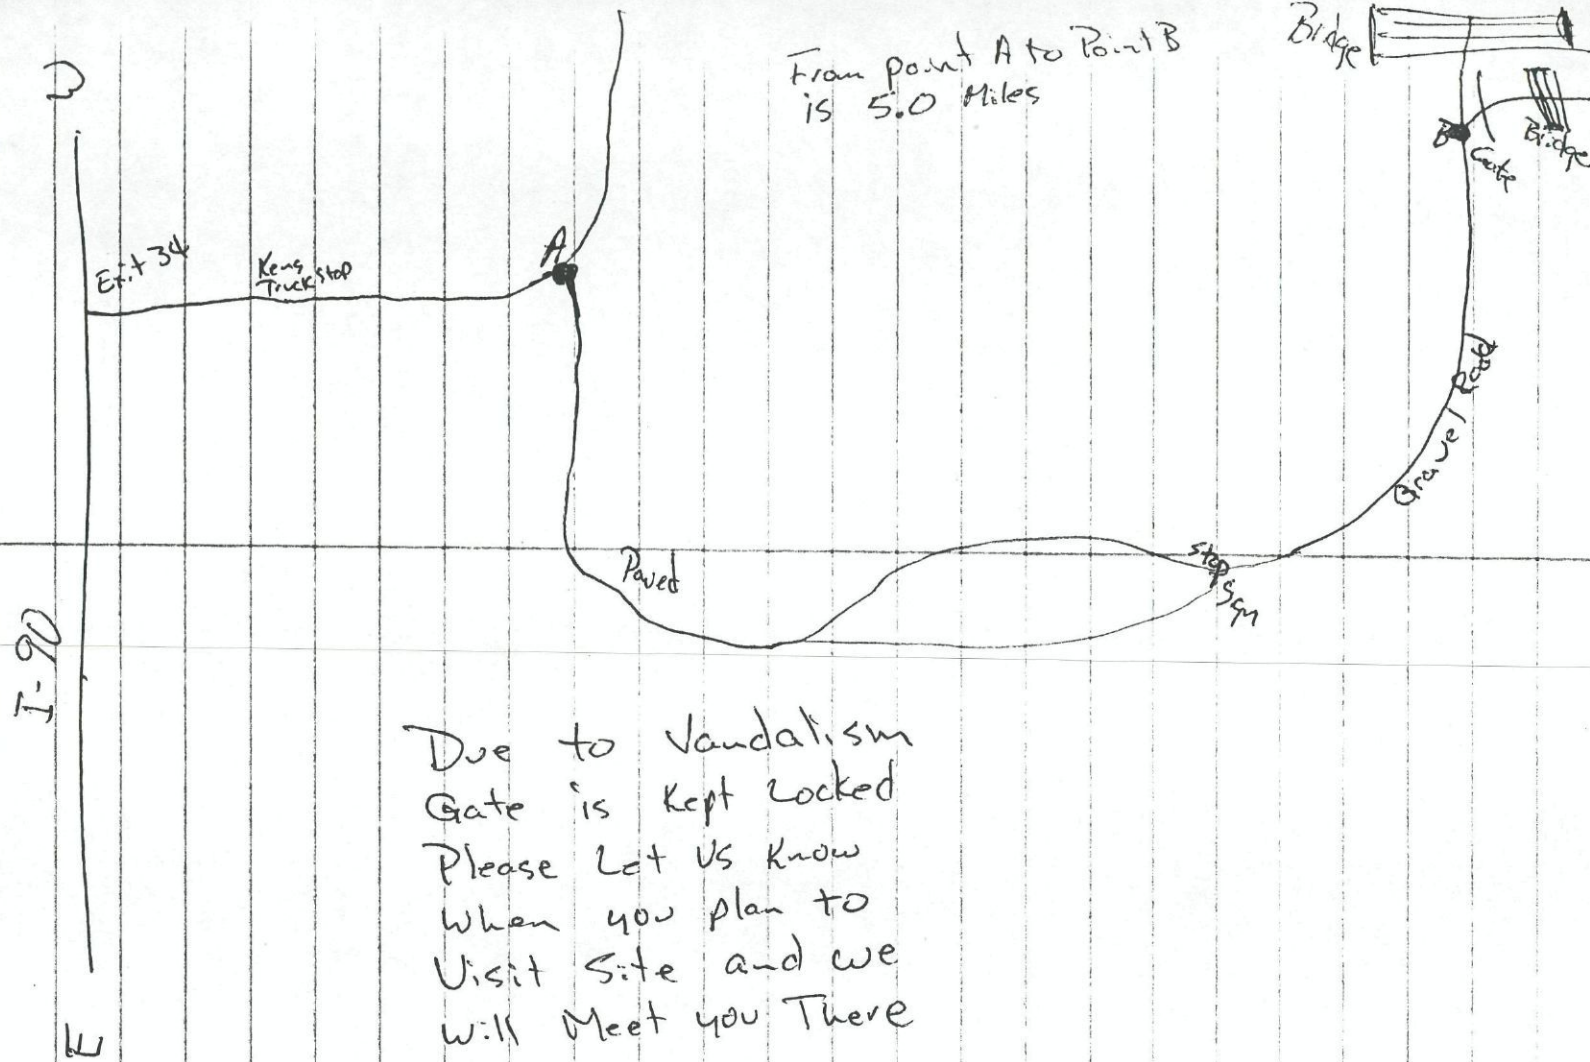 W
From point A to Point B
is 5.0 Miles
Bridge
B
Gate
Bridge
Exit 34
Kens
Truck stop
A
Gravel Road
Paved
Stop
Sign
I-90
Due to Vandalism
Gate is Kept Locked
Please Let Us Know
When you plan to
Visit Site and we
Will Meet you There
E